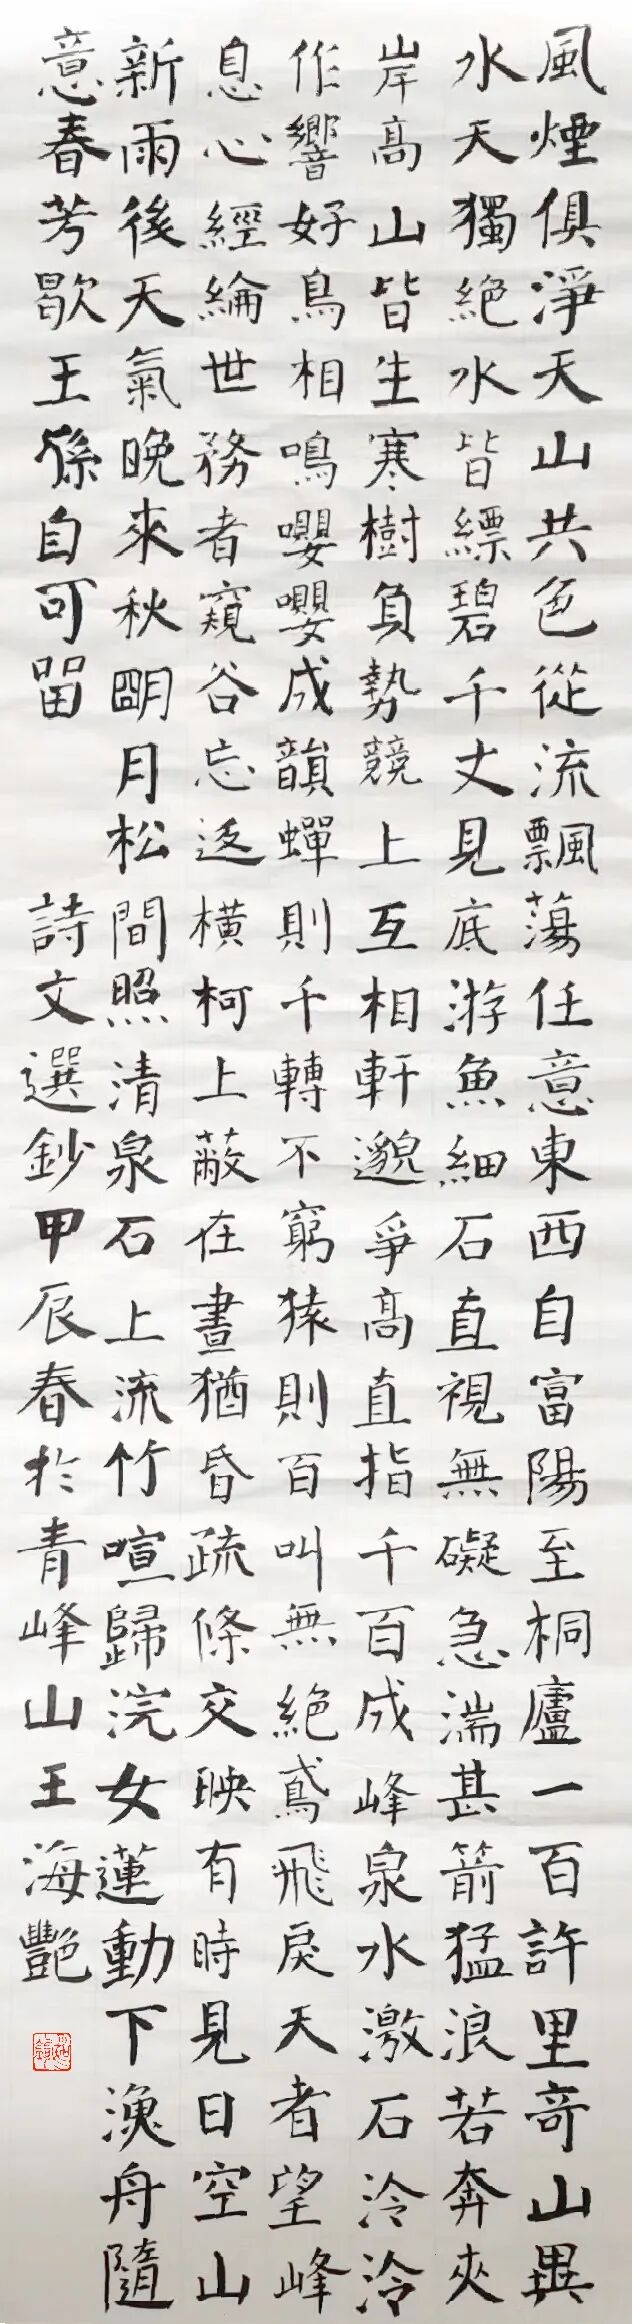 風煙俱淨天山共色從流飄蕩任意東西自富陽至桐廬一百許里奇山異
水天獨絕水皆縹碧千丈見底游魚細石直視無礙急湍甚箭猛浪若奔夾
岸高山皆生寒樹負勢競上互相軒邈爭高直指千百成峰泉水激石泠泠
作響好鳥相鳴嚶嚶成韻蟬則千轉不窮猿則百叫無絕鳶飛戾天者望峰
息心經綸世務者窺谷忘返橫柯上蔽在晝猶昏疏條交映有時見日空山
新雨後天氣晚來秋朙月松間照清泉石上流竹喧歸浣女蓮動下漁舟隨
意春芳歇王孫自可留
詩文選鈔甲辰春於青峰山王海艷